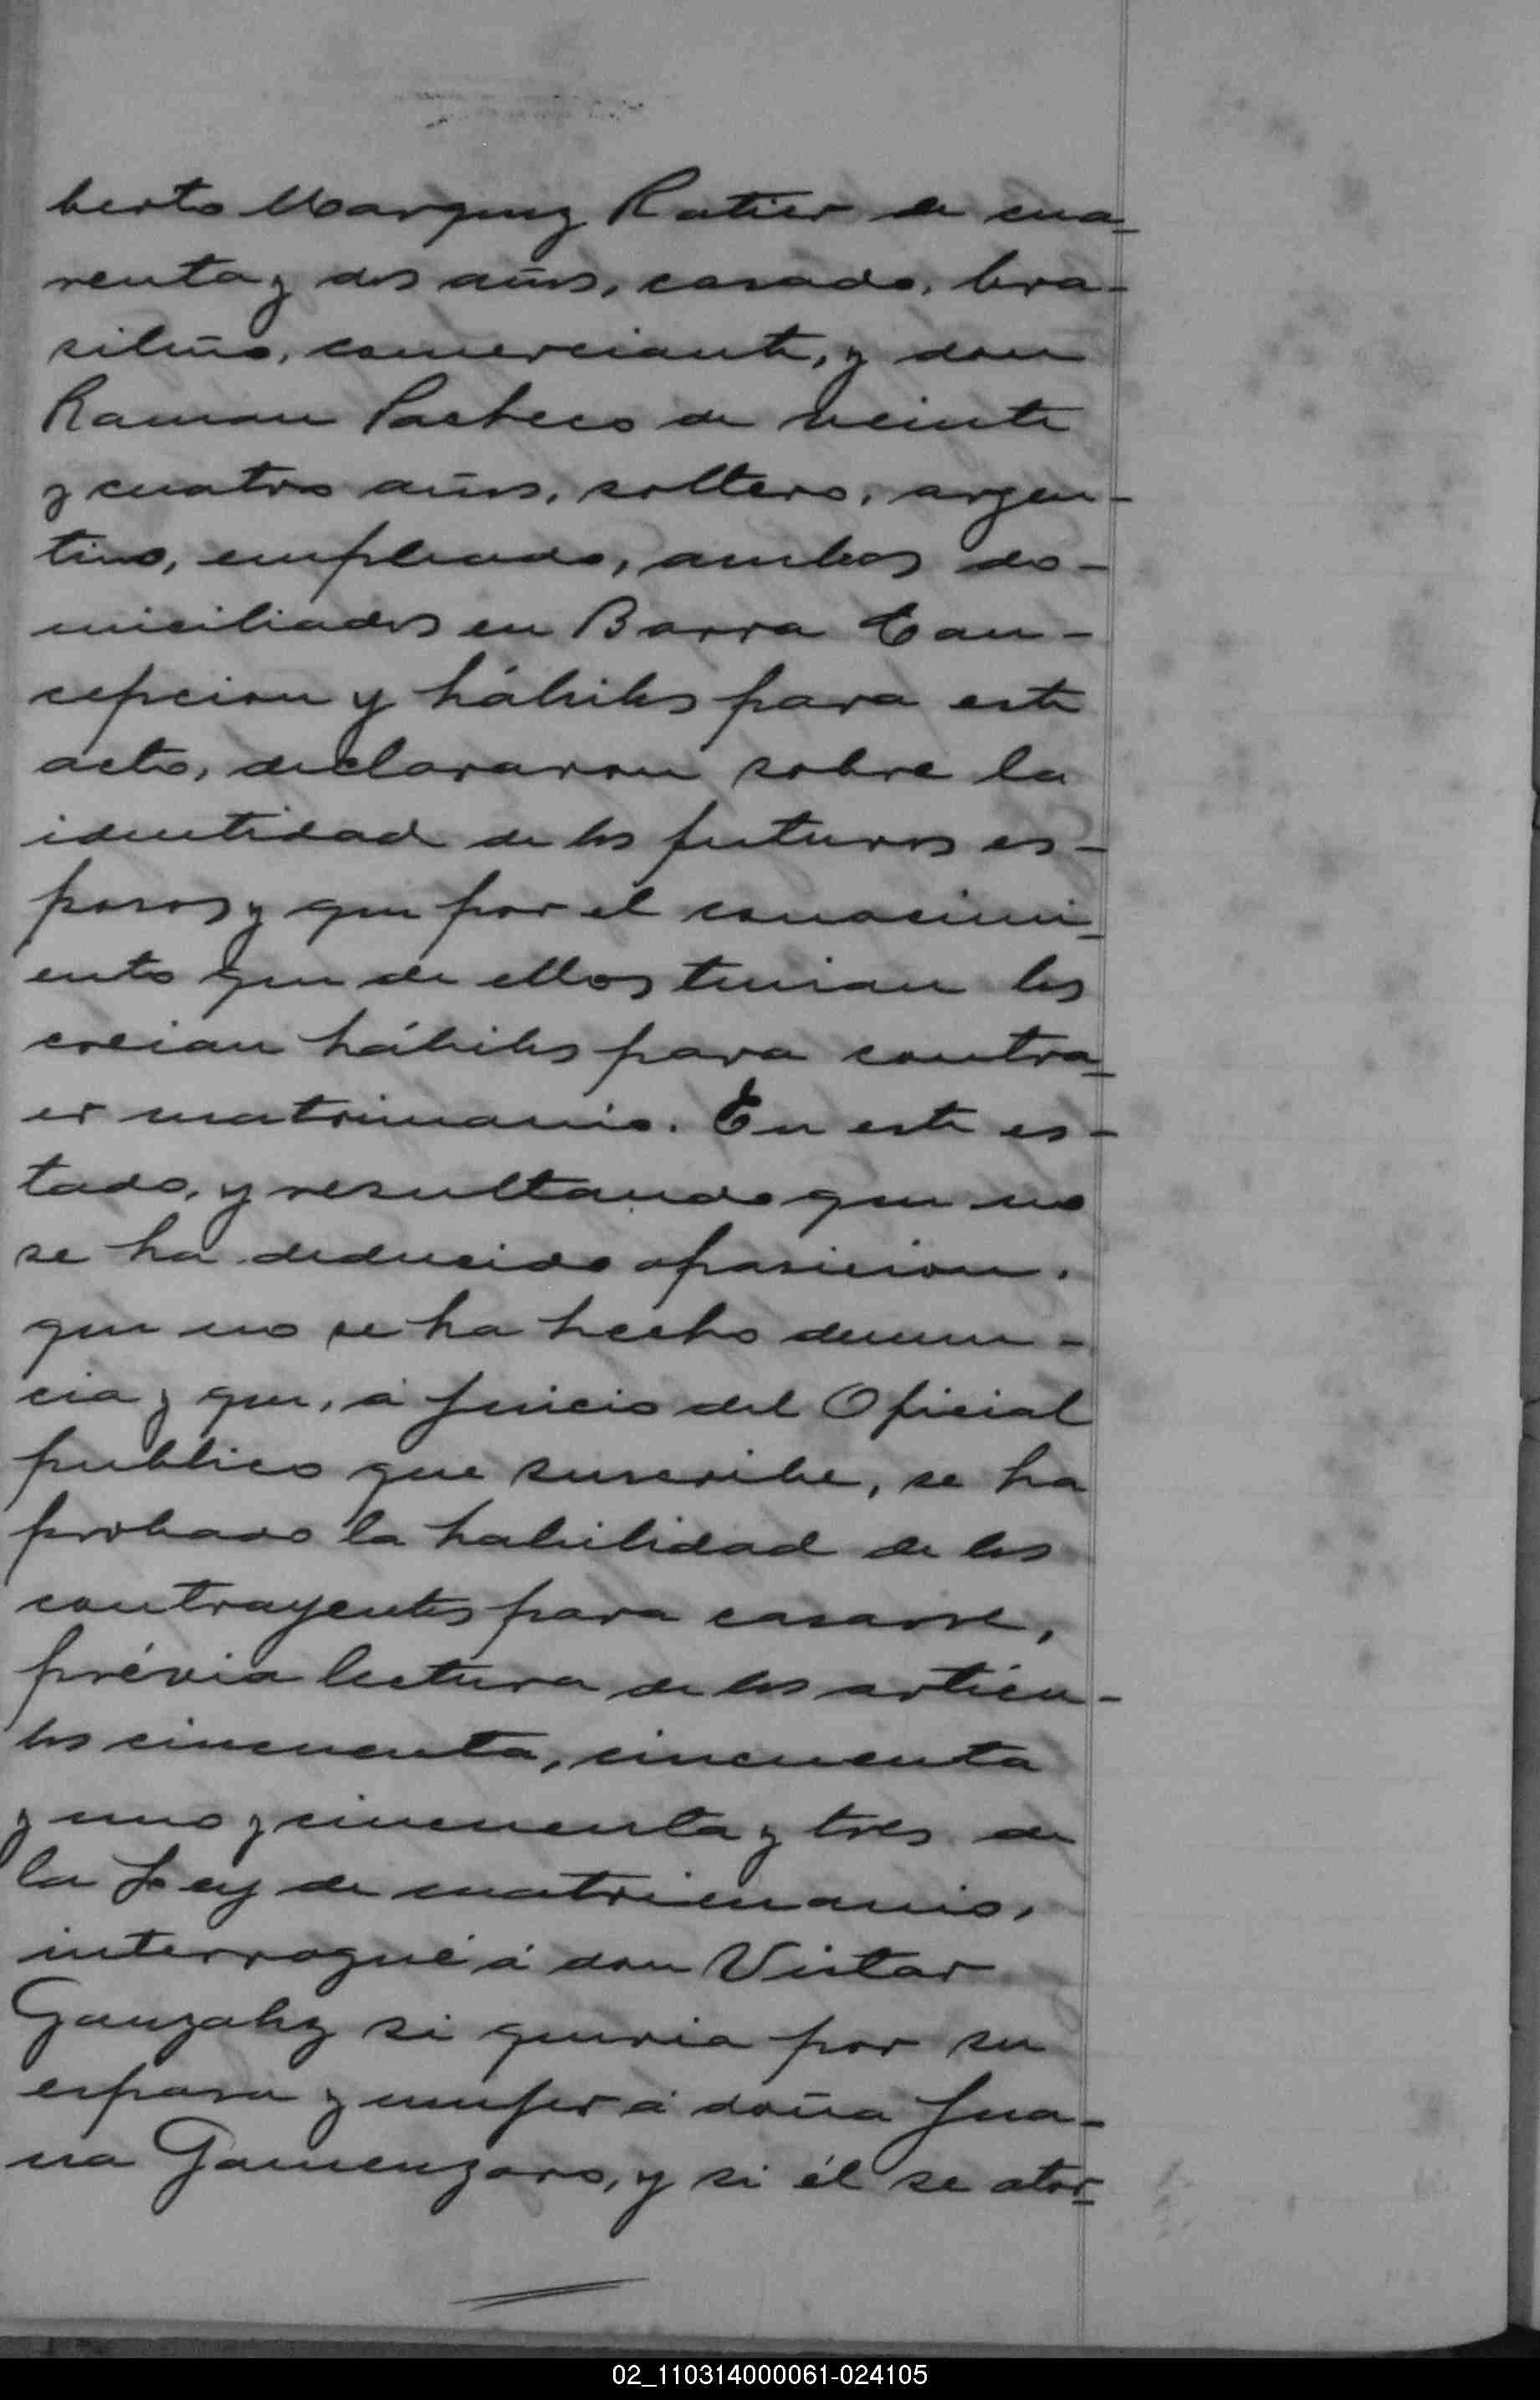 berto Marquez Ratier de cua-
renta y dos años, casado, bra-
sileño, comerciante, y don
Ramon Pacheco de veinte
y cuatro años, soltero, argen-
tino, empleado, ambos do-
miciliados en Barra Con-
cepcion y hábiles para este
acto, declararon sobre la
identidad de los futuros es-
posos y que por el conocimi-
ento que de ellos tenian los
creian hábiles para contra-
er matrimonio. En este es-
tado, y resultando que no
se ha deducido oposicion,
que no se ha hecho denun-
cia y que, á juicio del Oficial
publico que suscribe, se ha
probado la habilidad de los
contrayentes para casarse,
prévia lectura de los artícu-
los cincuenta, cincuenta
y uno y cincuenta y tres de
la Ley de matrimonio,
interrogué á don Victor
Gonzalez si queria por su
esposa y mujer á doña Jua-
na Gamenzoro, y si él se otor-
02_110314000061-024105